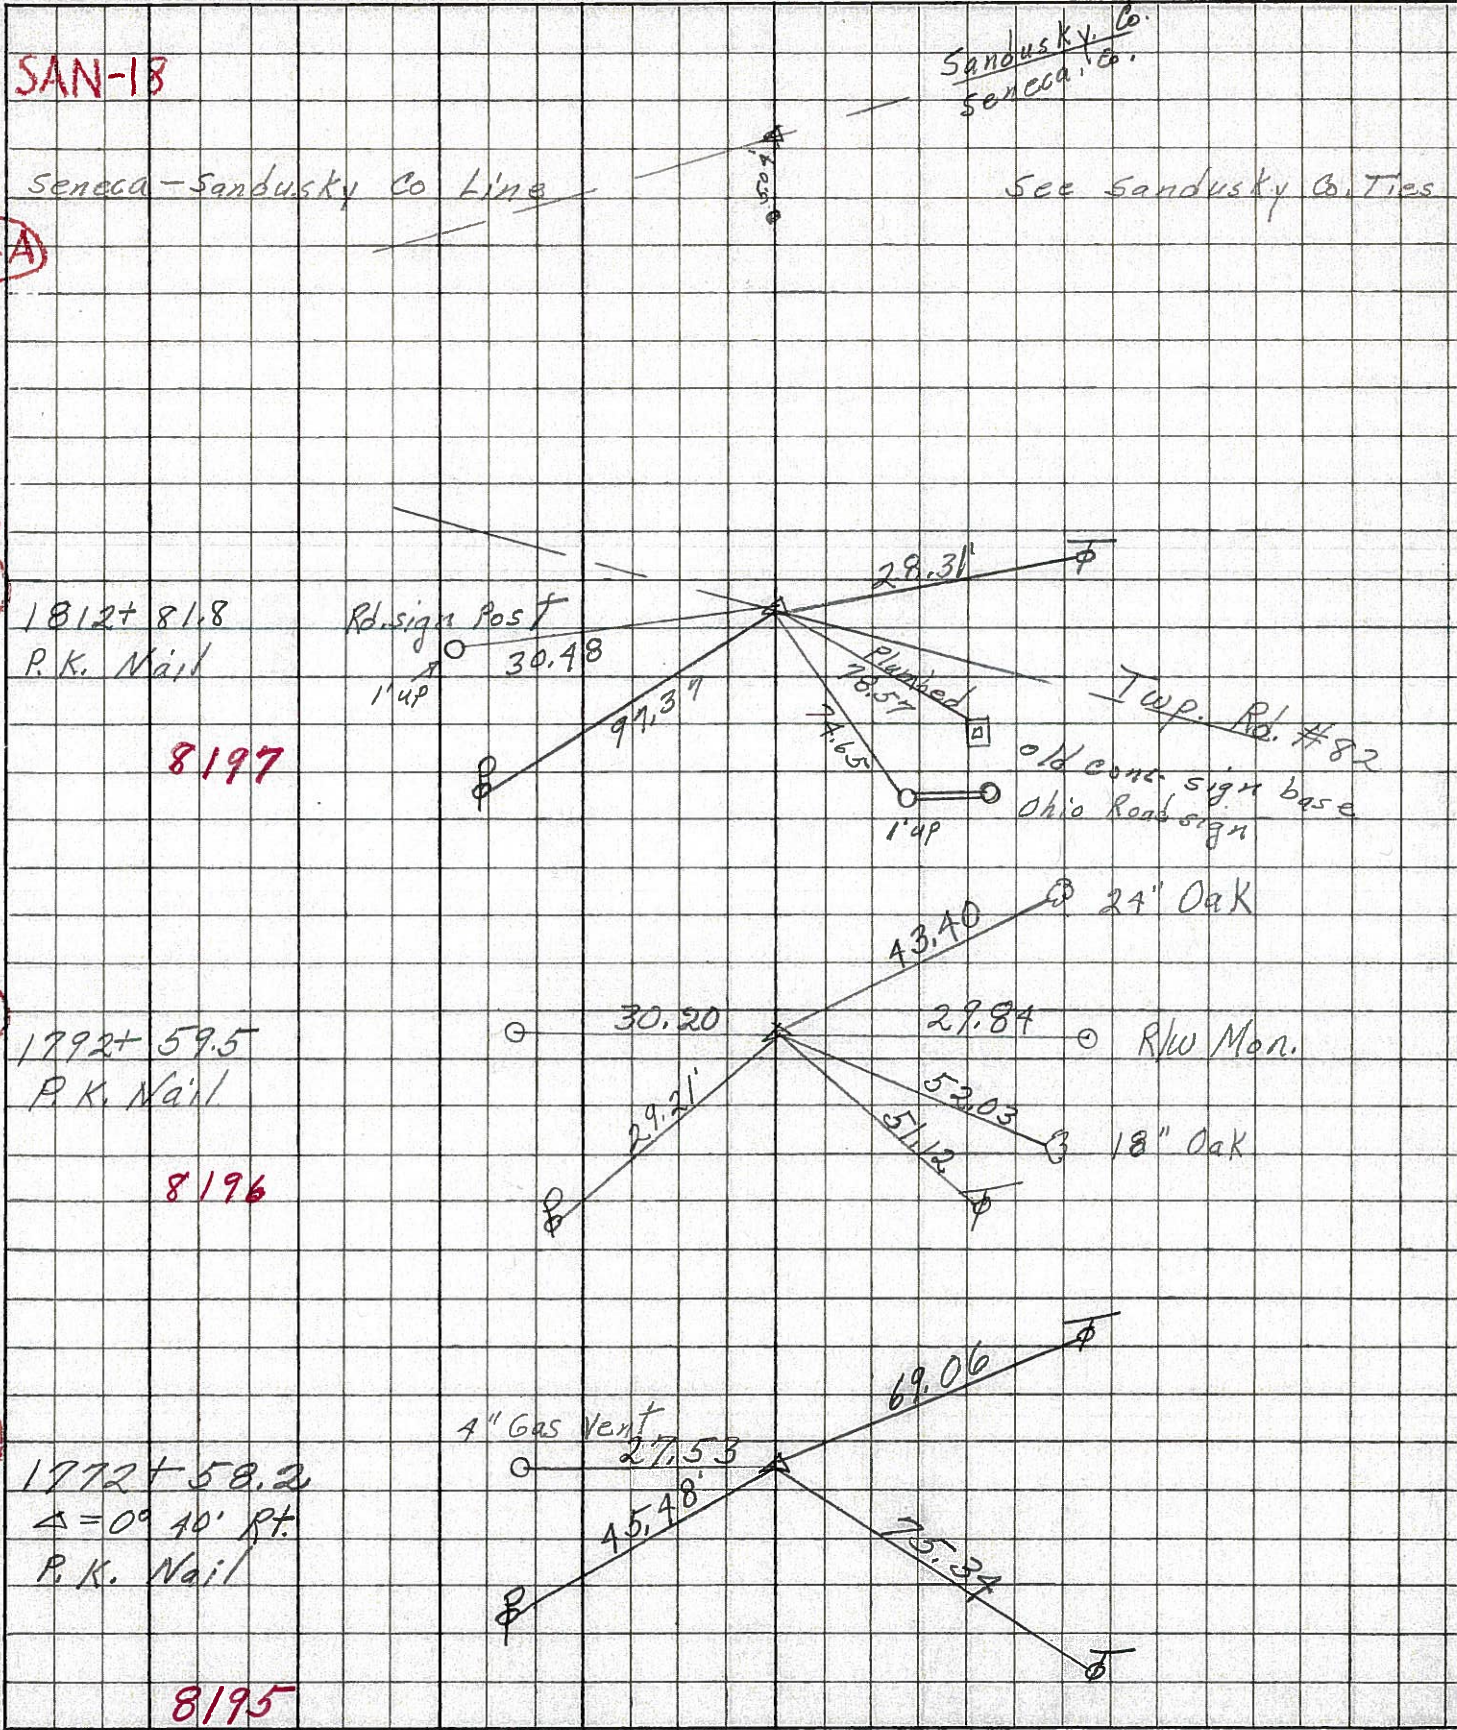 SAN-18
Sandusky Co.
Seneca, Co.
Seneca - Sandusky Co Line
See Sandusky Co. Ties
A
1812+ 81.8
P.K. Nail
8197
Rd. sign Post
30.48
1' up
97.37
28.31'
Plumbed
78.57
74.65
1' up
Twp. Rd. #82
old conc. sign base
Ohio Road sign
1792+ 59.5
P.K. Nail
8196
43.40
24" Oak
30.20
29.84
R/W Mon.
29.21'
52.03
18" Oak
51.12
1772+ 58.2
Δ = 0° 40' Rt.
P.K. Nail
8195
4" Gas Vent
27.53
45.48'
69.06
75.34